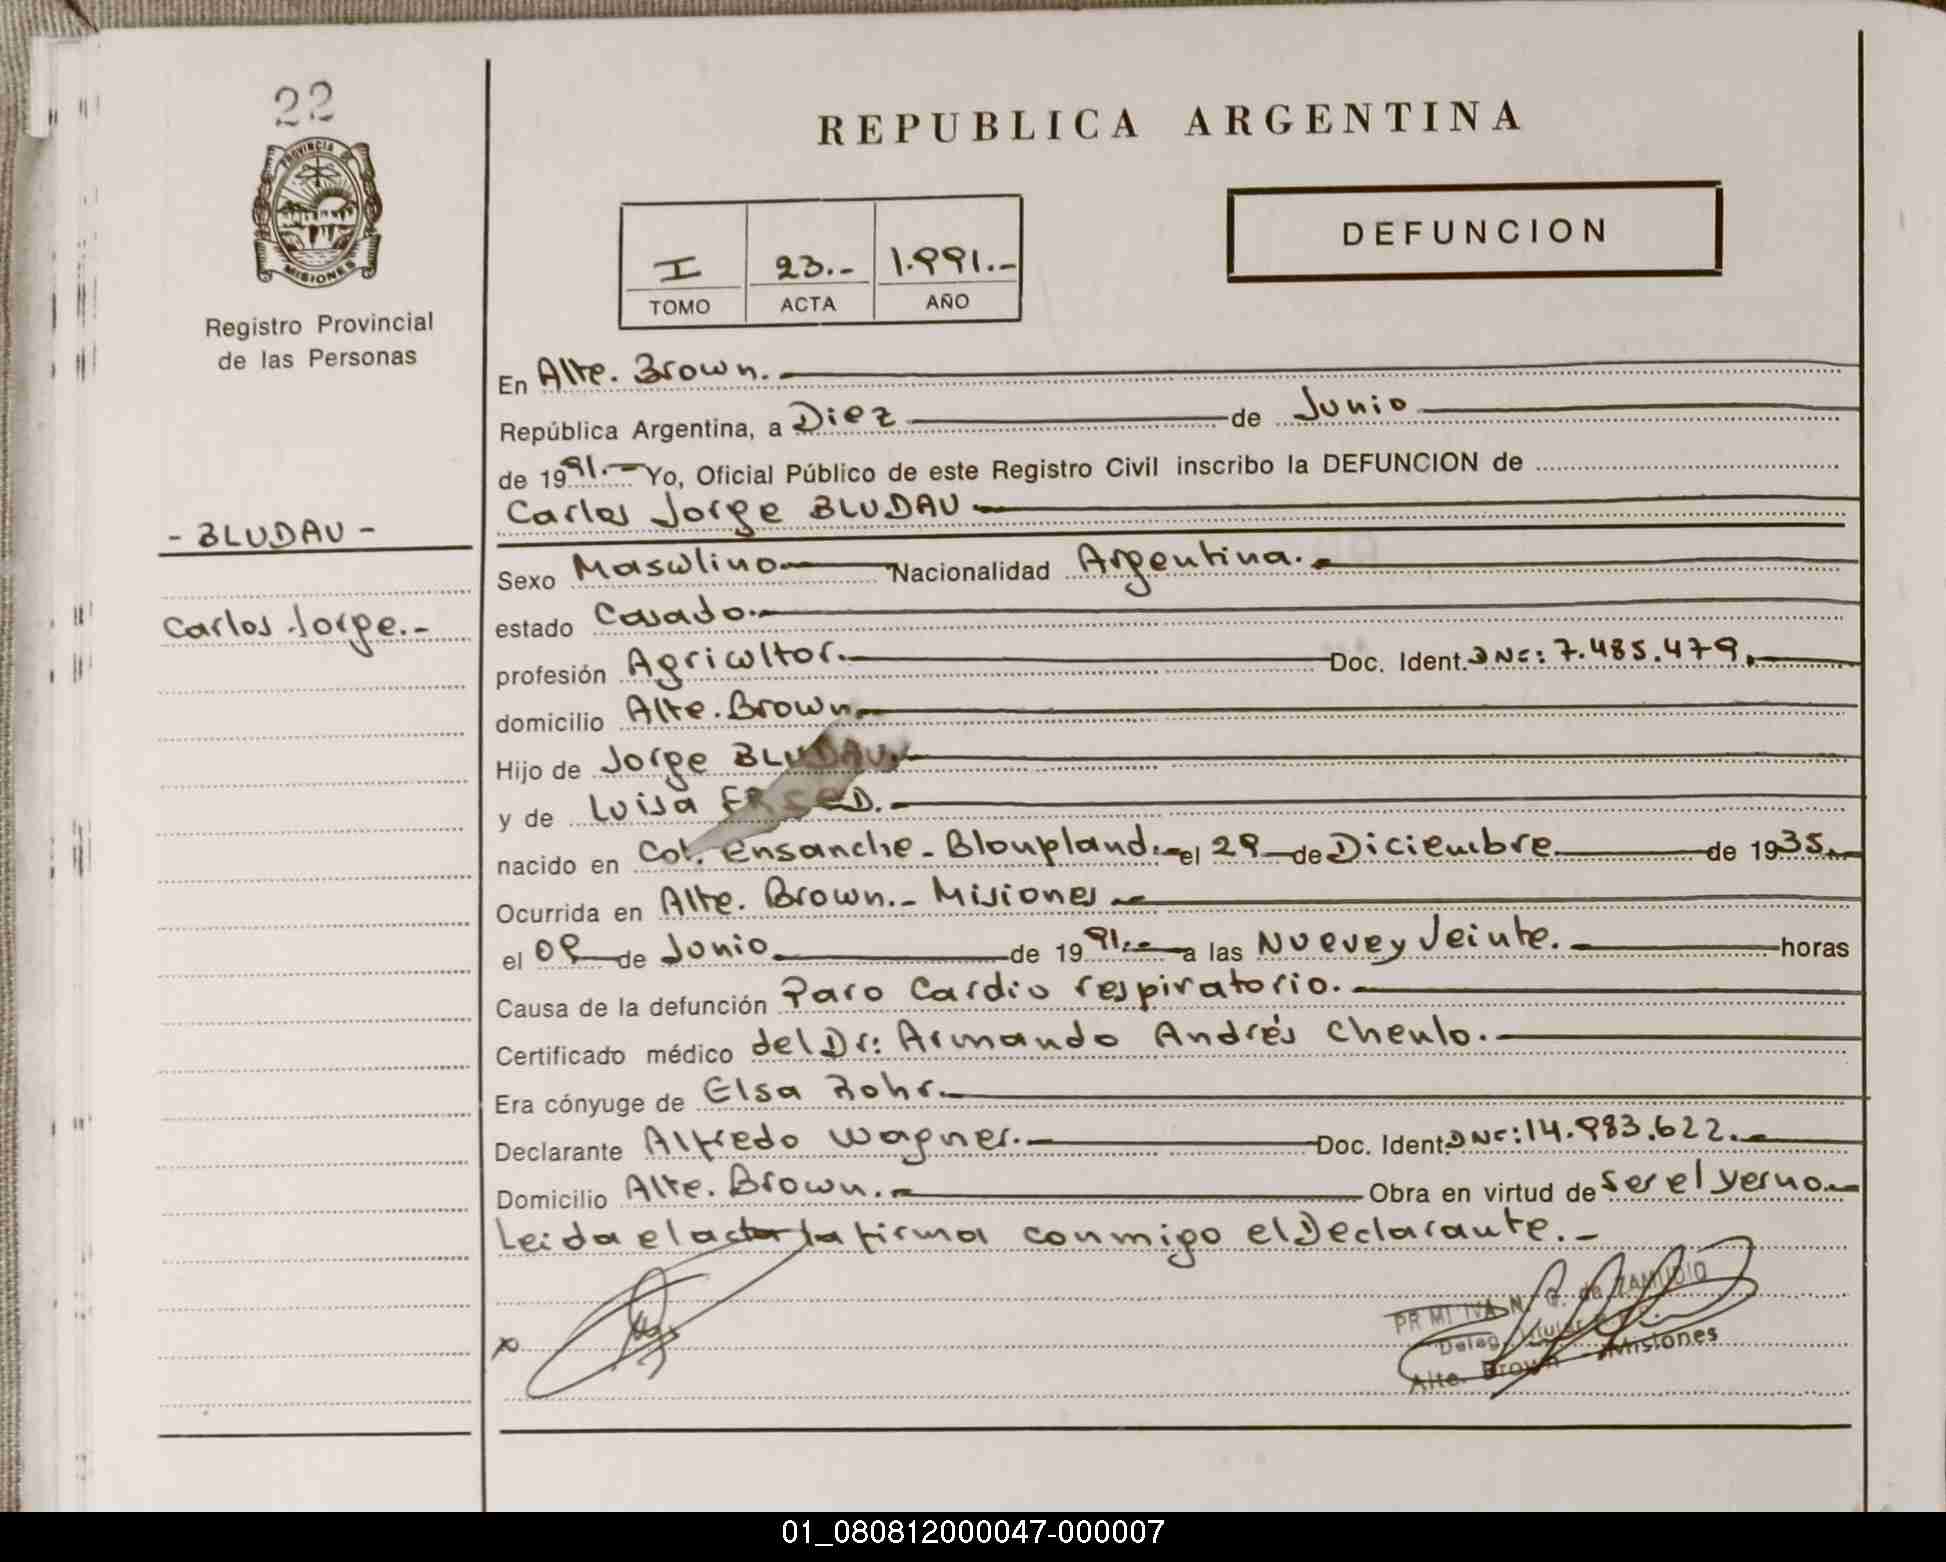 22
PROVINCIA DE
MISIONES
Registro Provincial
de las Personas
REPUBLICA ARGENTINA
DEFUNCION
I 23.- 1.991.-
TOMO ACTA AÑO
En Alte. Brown.
República Argentina, a Diez de Junio
de 1991.- Yo, Oficial Público de este Registro Civil inscribo la DEFUNCION de
Carlos Jorge BLUDAU
- BLUDAU -
Carlos Jorge.-
Sexo Masculino Nacionalidad Argentina.
estado Casado.
profesión Agricultor. Doc. Ident. DNI: 7.485.479.
domicilio Alte. Brown.
Hijo de Jorge BLUDAU.
y de Luisa
nacido en Col. Ensanche - Bloupland. el 29 de Diciembre de 1935.
Ocurrida en Alte. Brown.- Misiones
el 09 de Junio de 1991.- a las Nueve y Veinte. horas
Causa de la defunción Paro Cardio respiratorio.
Certificado médico del Dr: Armando Andrés Chenlo.
Era cónyuge de Elsa Rohr.
Declarante Alfredo Wagner. Doc. Ident. DNI: 14.983.622.
Domicilio Alte. Brown. Obra en virtud de ser el yerno.
Leida el acta la firma conmigo el Declarante.-
PRIMITIVA N. G. de ZAMUDIO
Deleg. Titular
Alte. Brown - Misiones
01_080812000047-000007